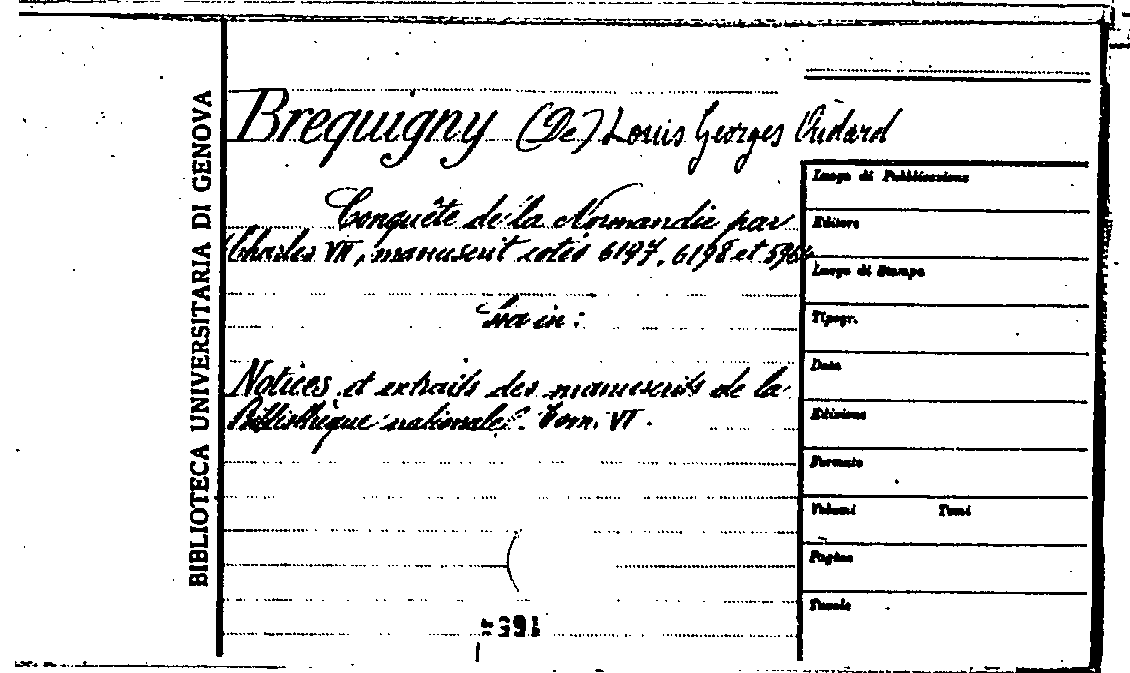 BIBLIOTECA UNIVERSITARIA DI GENOVA
Brequigny (De) Louis Georges Oudard
Conquête de la Normandie par
Charles VII, manuscrit cotés 6197, 6198 et 5964
Sta in:
Notices et extraits des manuscrits de la
Bibliothèque nationale. Tom. VI.
Luogo di Pubblicazione
Editore
Luogo di Stampa
Tipogr.
Data
Edizione
Formato
Volumi Tomi
Pagine
Tavole